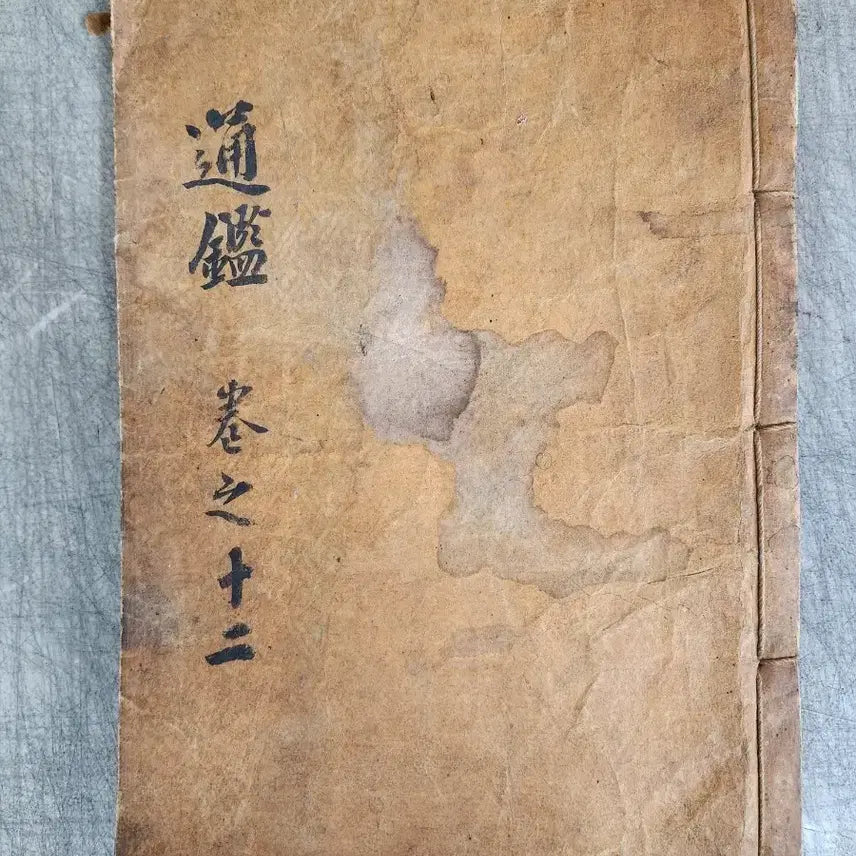 通鑑 卷之十二